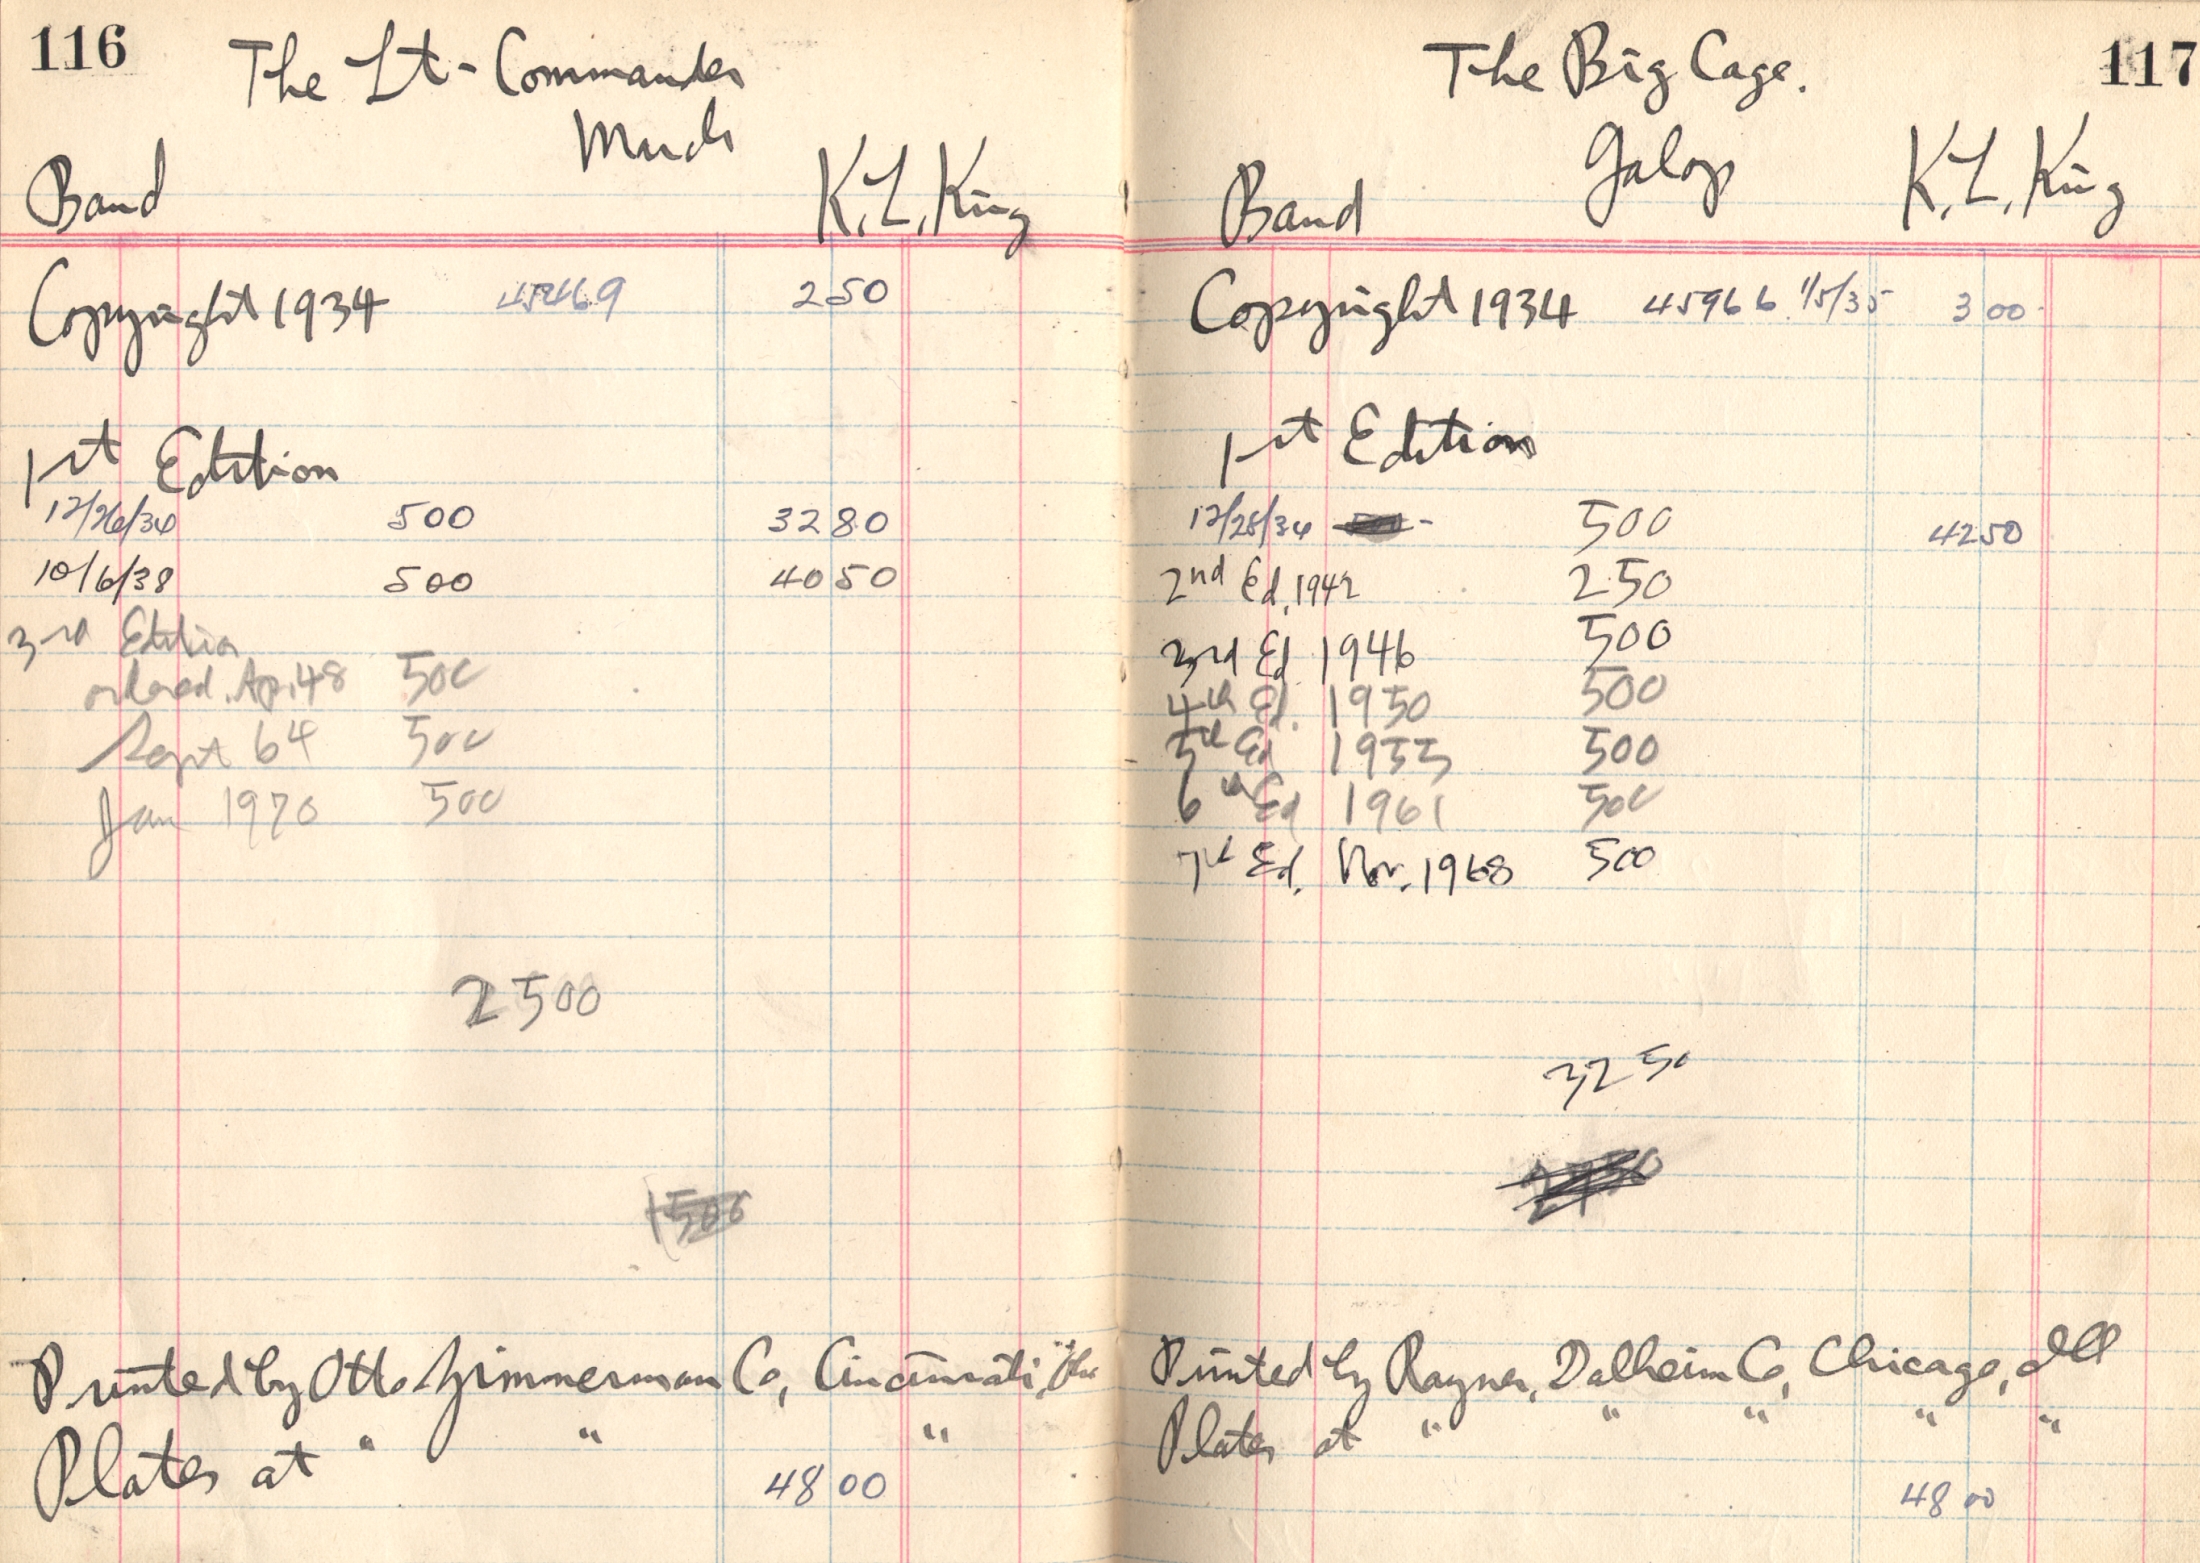 116
The Lt-Commander
March
Band
K.L. King
Copyright 1934 45469 2 50
1st Edition
12/26/34 500 32 80
10/6/38 500 40 50
3rd Edition
ordered Ap. 48 500
Sept 64 500
Jan 1970 500
2500
1500
Printed by Otto Zimmerman Co, Cincinnati, Ohio
Plates at " " "
48 00
117
The Big Cage.
Galop
Band
K.L. King
Copyright 1934 45966 1/5/35 3 00
1st Edition
12/28/34 - 500 42 50
2nd Ed, 1942 250
3rd Ed 1946 500
4th Ed. 1950 500
5th Ed 1955 500
6th Ed 1961 500
7th Ed. Nov. 1968 500
3250
Printed by Rayner, Dalheim Co, Chicago, Ill
Plates at " " " " "
48 00